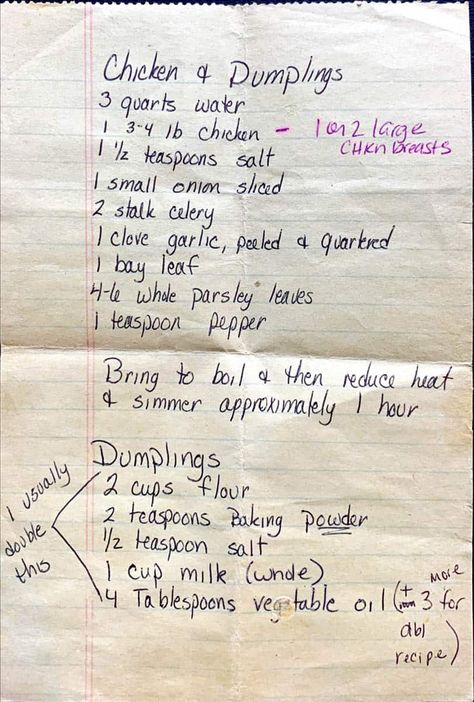 Chicken & Dumplings
3 quarts water
1 3-4 lb chicken - 1 or 2 large
CHKn breasts
1 1/2 teaspoons salt
1 small onion sliced
2 stalk celery
1 clove garlic, peeled & quartered
1 bay leaf
4-6 whole parsley leaves
1 teaspoon pepper
Bring to boil & then reduce heat
& simmer approximately 1 hour
Dumplings
I usually
double
this
2 cups flour
2 teaspoons Baking powder
1/2 teaspoon salt
1 cup milk (whole)
4 Tablespoons vegetable oil (+ 3 more for
dbl
recipe)